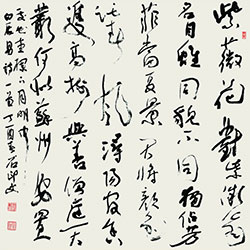 紫薇花對紫微翁
名目雖同貌不同獨佔芳
菲當夏景不將顏色
託春風潯陽官舍
雙高樹興善僧庭一大
叢何似蘇州安置
處花堂欄下月明中
白居易詩一首丁酉